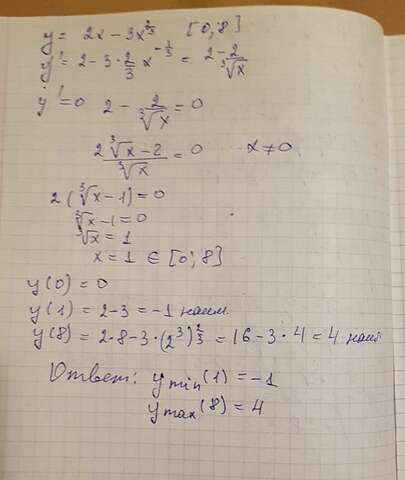 y = 2x - 3x^{2/3} [0; 8]
y' = 2 - 3 · 2/3 x^{-1/3} = 2 - 2/∛x
y' = 0 2 - 2/∛x = 0
(2∛x - 2)/∛x = 0 x ≠ 0
2(∛x - 1) = 0
∛x - 1 = 0
∛x = 1
x = 1 ∈ [0; 8]
y(0) = 0
y(1) = 2 - 3 = -1 наим.
y(8) = 2·8 - 3·(2³)^{2/3} = 16 - 3·4 = 4 наиб
Ответ: y min (1) = -1
y max (8) = 4